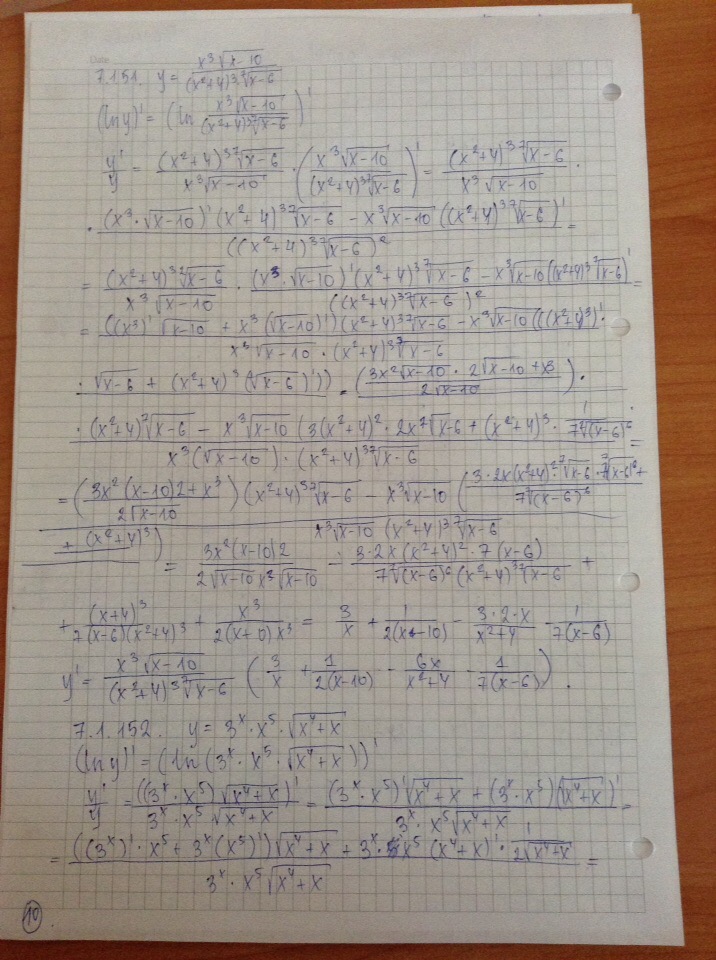 7.1.151. y = x³√(x-10) / ((x²+4)³ ⁷√(x-6))
(ln y)' = (ln x³√(x-10) / ((x²+4)³ ⁷√(x-6)))'
y'/y = (x²+4)³ ⁷√(x-6) / (x³√(x-10)) · (x³√(x-10) / ((x²+4)³ ⁷√(x-6)))' = (x²+4)³ ⁷√(x-6) / (x³√(x-10)) ·
· ((x³·√(x-10))' (x²+4)³ ⁷√(x-6) - x³√(x-10) ((x²+4)³ ⁷√(x-6))') / ((x²+4)³ ⁷√(x-6))² =
= (x²+4)³ ⁷√(x-6) / (x³√(x-10)) · ((x³·√(x-10))' (x²+4)³ ⁷√(x-6) - x³√(x-10) ((x²+4)³ ⁷√(x-6))') / ((x²+4)³ ⁷√(x-6))² =
= ((x³)' √(x-10) + x³(√(x-10))') (x²+4)³ ⁷√(x-6) - x³√(x-10) (((x²+4)³)' · / x³√(x-10) · (x²+4)³ ⁷√(x-6)
· √(x-6) + (x²+4)³ (⁷√(x-6))')) = ((3x²√(x-10) · 2√(x-10) + x³) / (2√(x-10))) ·
· (x²+4)³ ⁷√(x-6) - x³√(x-10) (3(x²+4)² · 2x ⁷√(x-6) + (x²+4)³ · 1/(7 ⁷√(x-6)⁶) / x³(√(x-10)) · (x²+4)³ ⁷√(x-6) =
= ((3x²(x-10)2 + x³) / (2√(x-10))) (x²+4)³ ⁷√(x-6) - x³√(x-10) ((3·2x(x²+4)² · ⁷√(x-6) · 7 ⁷√(x-6)⁶ + / 7 ⁷√(x-6)⁶
+ (x²+4)³) / x³√(x-10) (x²+4)³ ⁷√(x-6) = 3x²(x-10)2 / (2√(x-10) x³√(x-10)) - 3·2x(x²+4)² · 7(x-6) / (7 ⁷√(x-6)⁶ (x²+4)³ ⁷√(x-6)) +
+ (x+4)³ / (7(x-6)(x²+4)³) + x³ / (2(x+0)x³) = 3/x + 1/(2(x-10)) - 3·2·x/(x²+4) - 1/(7(x-6))
y' = x³√(x-10) / ((x²+4)³ ⁷√(x-6)) (3/x + 1/(2(x-10)) - 6x/(x²+4) - 1/(7(x-6))).
7.1.152. y = 3ˣ · x⁵ · √(x⁴+x)
(ln y)' = (ln(3ˣ · x⁵ · √(x⁴+x)))'
y'/y = ((3ˣ · x⁵) √(x⁴+x))' / (3ˣ · x⁵ √(x⁴+x)) = ((3ˣ · x⁵)' √(x⁴+x) + (3ˣ · x⁵)(√(x⁴+x))') / (3ˣ · x⁵ √(x⁴+x)) =
= (((3ˣ)' · x⁵ + 3ˣ(x⁵)') √(x⁴+x) + 3ˣ · x⁵ (x⁴+x)' · 1/(2√(x⁴+x))) / (3ˣ · x⁵ √(x⁴+x)) =
10